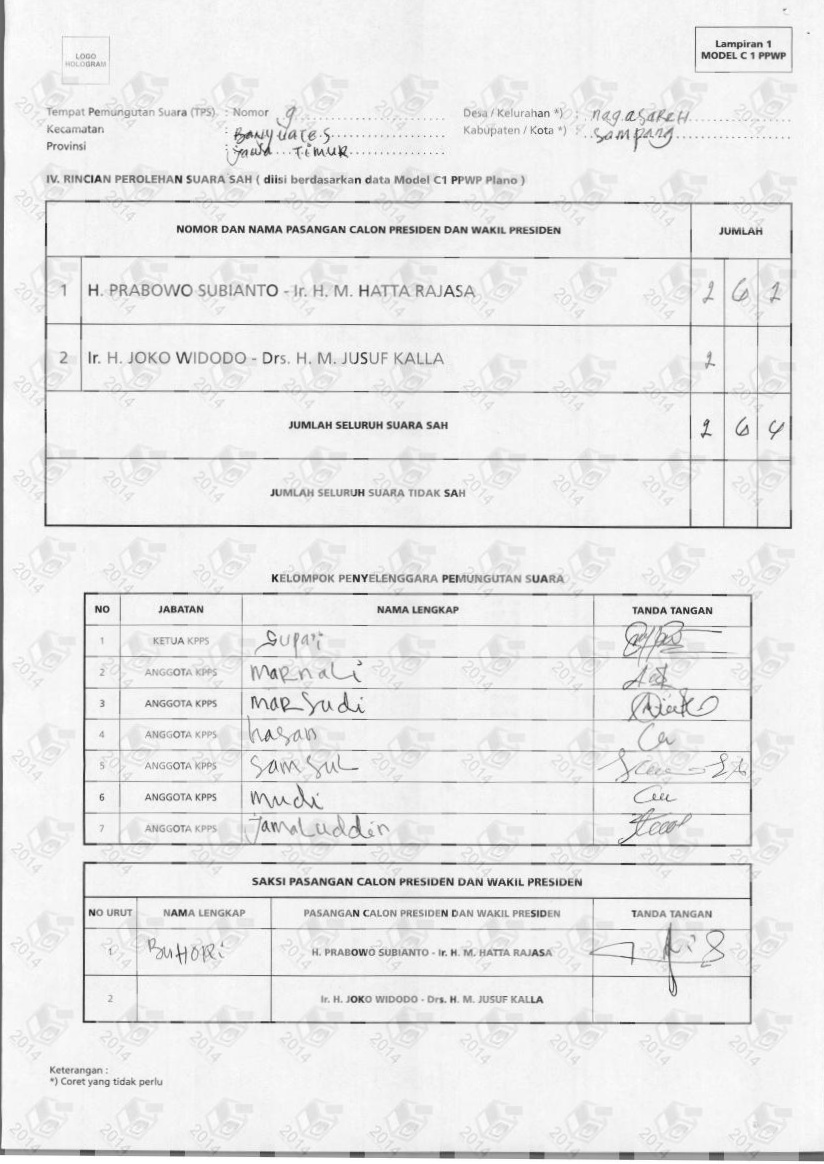 Lampiran 1
MODEL C 1 PPWP
LOGO
HOLOGRAM
Tempat Pemungutan Suara (TPS) : Nomor 9 Desa / Kelurahan *) : nagasareh
Kecamatan : Banyuates Kabupaten / Kota *) : Sampang
Provinsi : Jawa Timur
IV. RINCIAN PEROLEHAN SUARA SAH ( diisi berdasarkan data Model C1 PPWP Plano )
NOMOR DAN NAMA PASANGAN CALON PRESIDEN DAN WAKIL PRESIDEN JUMLAH
1 H. PRABOWO SUBIANTO - Ir. H. M. HATTA RAJASA 2 6 2
2 Ir. H. JOKO WIDODO - Drs. H. M. JUSUF KALLA 2
JUMLAH SELURUH SUARA SAH 2 6 4
JUMLAH SELURUH SUARA TIDAK SAH
KELOMPOK PENYELENGGARA PEMUNGUTAN SUARA
NO JABATAN NAMA LENGKAP TANDA TANGAN
1 KETUA KPPS Supari
2 ANGGOTA KPPS Marnali
3 ANGGOTA KPPS Marsudi
4 ANGGOTA KPPS hasan
5 ANGGOTA KPPS Samsul
6 ANGGOTA KPPS Mudi
7 ANGGOTA KPPS Jamaluddin
SAKSI PASANGAN CALON PRESIDEN DAN WAKIL PRESIDEN
NO URUT NAMA LENGKAP PASANGAN CALON PRESIDEN DAN WAKIL PRESIDEN TANDA TANGAN
1 BuHORi H. PRABOWO SUBIANTO - Ir. H. M. HATTA RAJASA
2 Ir. H. JOKO WIDODO - Drs. H. M. JUSUF KALLA
Keterangan :
*) Coret yang tidak perlu